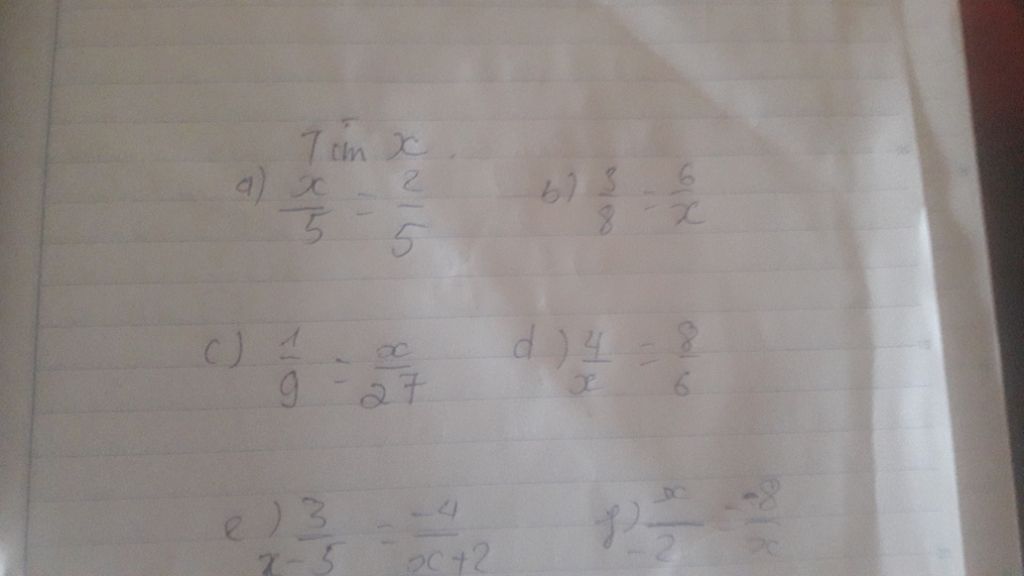 Tìm x.
a) x/5 = 2/5 b) 3/8 = 6/x
c) 1/9 = x/27 d) 4/x = 8/6
e) 3/(x-5) = -4/(x+2) f) x/-2 =